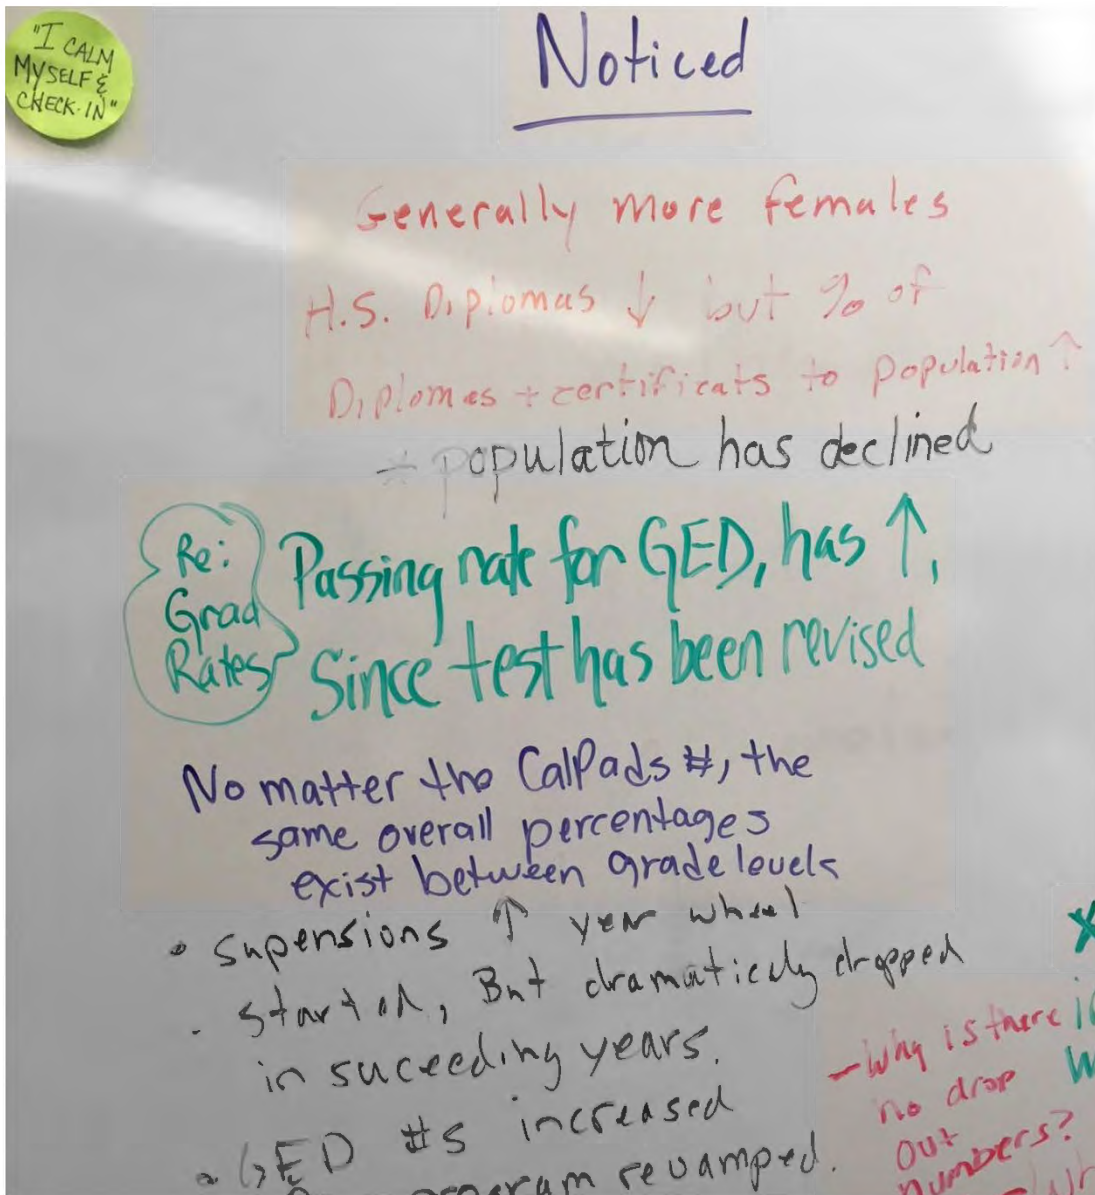 "I CALM
MYSELF &
CHECK-IN"
Noticed
Generally more females
H.S. Diplomas ↓ but % of
Diplomas + certificats to population ↑
population has declined
Re:
Grad
Rates
Passing rate for GED, has ↑,
Since test has been revised
No matter the CalPads #, the
same overall percentages
exist between grade levels
• Supensions ↑ year wheel
started, But dramaticly dropped
in suceeding years.
• GED #s increased
program revamped.
- Why is there
no drop
out
numbers?